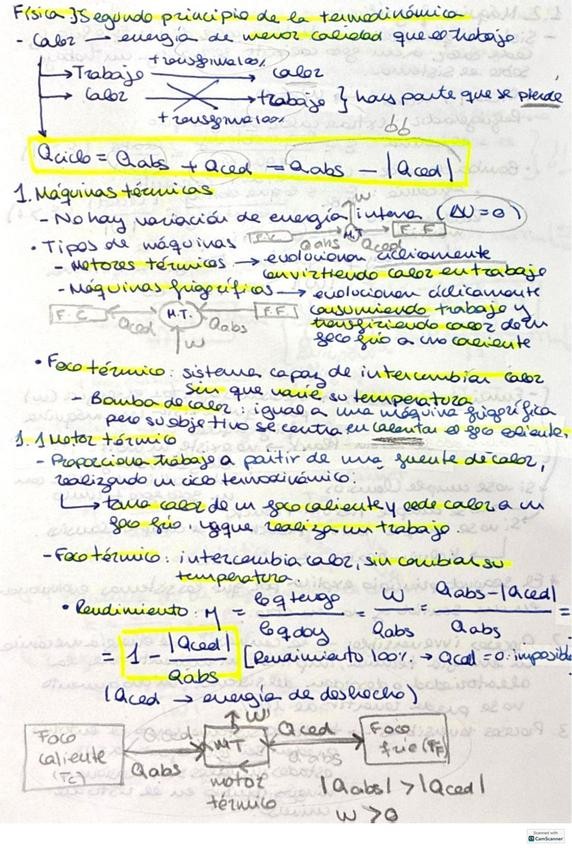 Física] Segundo principio de la termodinámica
- Calor — energía de menor calidad que el trabajo
+ transforma 100%
→ Trabajo → calor
→ calor → trabajo } hay parte que se pierde
+ transforma 100%
Qciclo = Qabs + Qced = Qabs - |Qced|
1. Máquinas térmicas
- No hay variación de energía interna (ΔU = 0)
W
• Tipos de máquinas F.C. Qabs M.T. Qced F.F.
- Motores térmicos → evolucionan cíclicamente
convirtiendo calor en trabajo
- Máquinas frigoríficas → evolucionan cíclicamente
F.C. Qced M.T. Qabs F.F. consumiendo trabajo y
transfiriendo calor de un
W foco frío a uno caliente
• Foco térmico: sistema capaz de intercambiar calor
sin que varíe su temperatura
- Bomba de calor: igual a una máquina frigorífica
pero su objetivo se centra en calentar el foco caliente.
1.1 Motor térmico
- Proporciona trabajo a partir de una fuente de calor,
realizando un ciclo termodinámico:
↳ toma calor de un foco caliente y cede calor a un
foco frío, y que realiza un trabajo.
- Foco térmico: intercambia calor, sin cambiar su
temperatura
• Rendimiento: η = lo q tengo / lo q doy = W / Qabs = Qabs - |Qced| / Qabs =
= 1 - |Qced| / Qabs [Rendimiento 100% → Qced = 0: imposible
(Qced → energía de deshecho)
Foco caliente (Tc) Qabs M.T. W Qced Foco frío (TF)
motor térmico
|Qabs| > |Qced|
W > 0
Scanned with
CamScanner